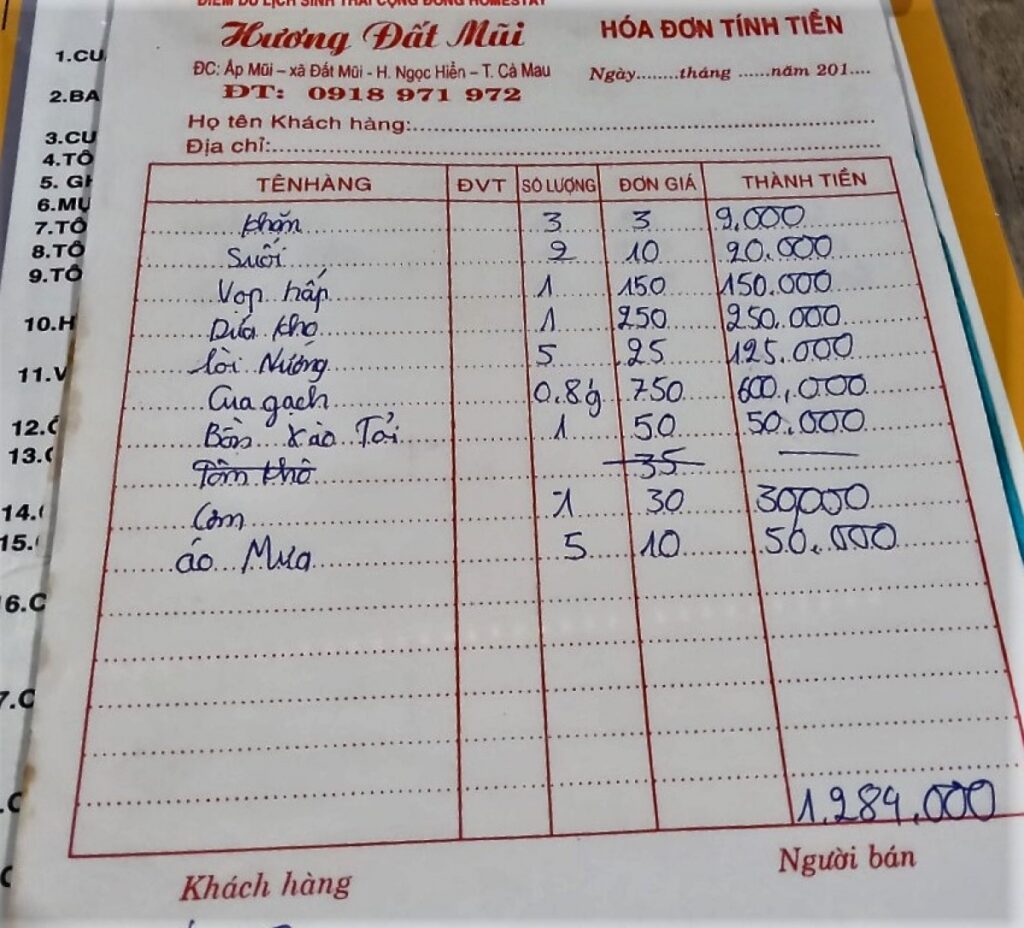 ĐIỂM DU LỊCH SINH THÁI CỘNG ĐỒNG HOMESTAY
Hương Đất Mũi
HÓA ĐƠN TÍNH TIỀN
ĐC: Ấp Mũi – xã Đất Mũi - H. Ngọc Hiển – T. Cà Mau
Ngày........tháng ......năm 201....
ĐT: 0918 971 972
Họ tên Khách hàng:
Địa chỉ:
TÊN HÀNG ĐVT SỐ LƯỢNG ĐƠN GIÁ THÀNH TIỀN
khăn 3 3 9.000
Suối 2 10 20.000
Vọp hấp 1 150 150.000
Dứa kho 1 250 250.000
lòi Nướng 5 25 125.000
Cua gạch 0.8g 750 600.000
Bồn xào Tỏi 1 50 50.000
Tôm khô 35
Cơm 1 30 30,000
áo Mưa 5 10 50.000
1.284.000
Khách hàng
Người bán
1.CU
2.BA
3.CU
4.TÔ
5. GH
6.MỰ
7.TÔ
8.TÔ
9.TÔ
10.H
11.V
12.C
13.C
14.C
15.
16.C
7.C
.C
C